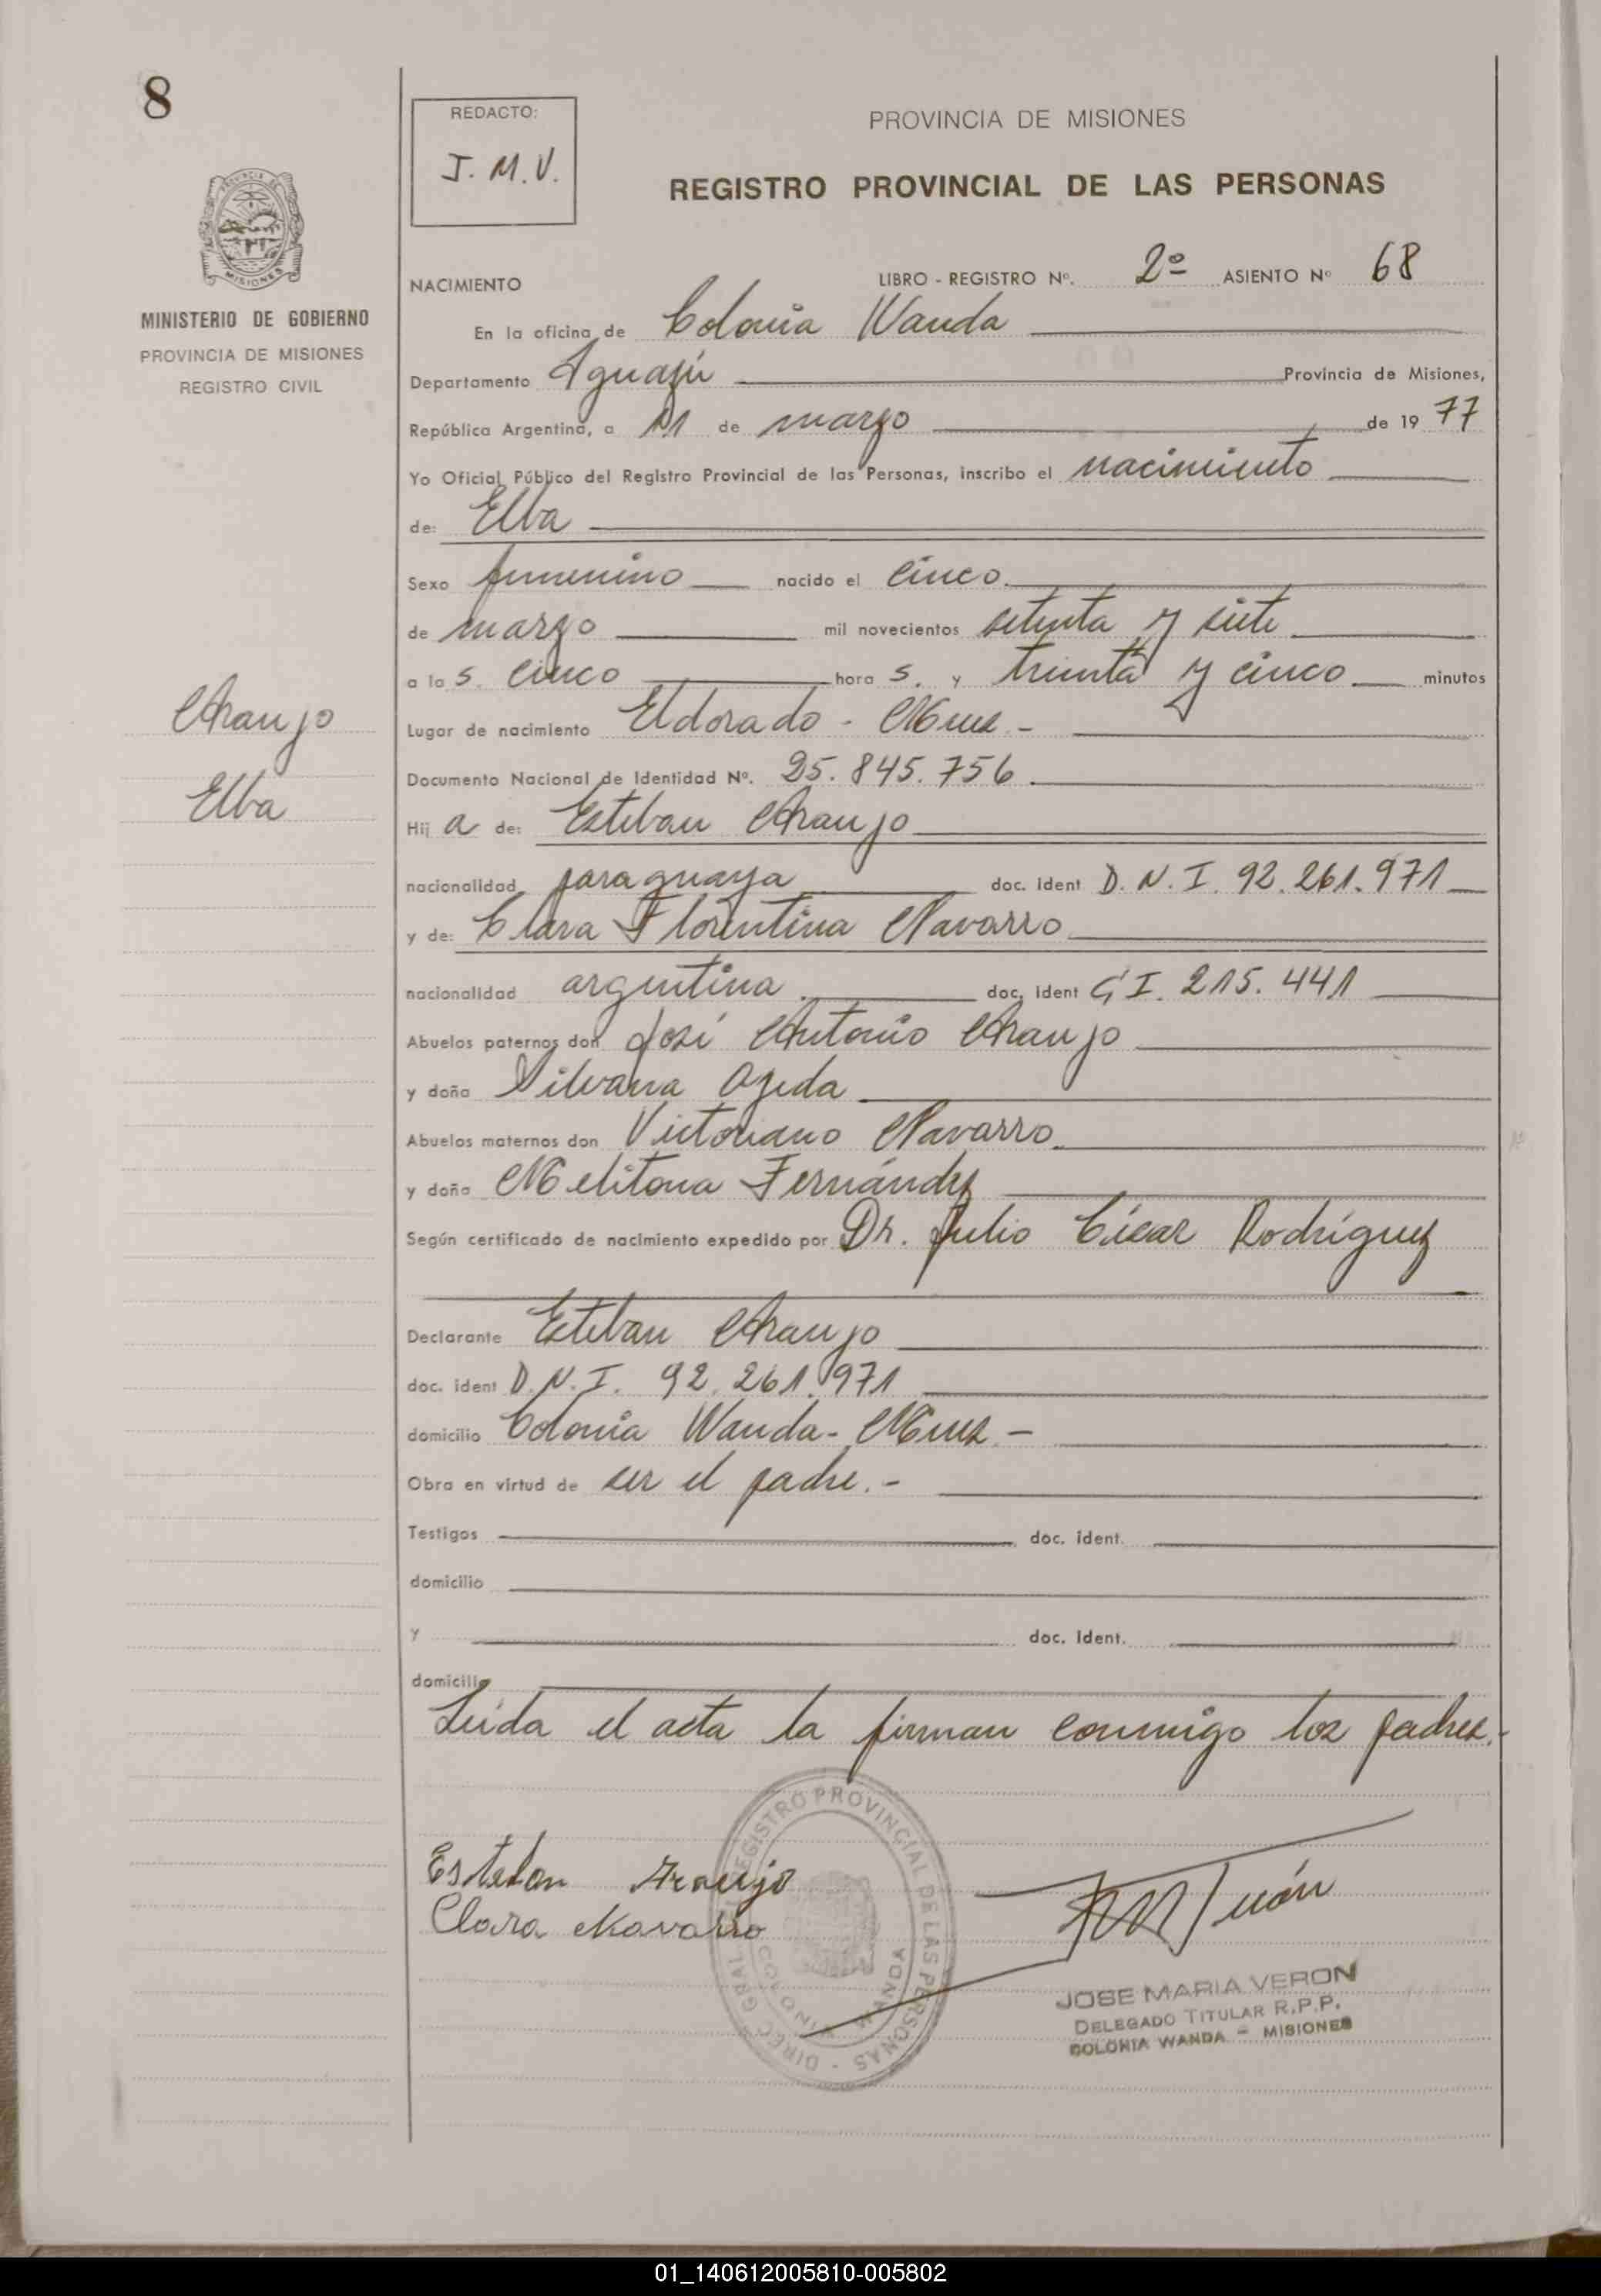 8
REDACTO:
J. M. V.
PROVINCIA DE MISIONES
REGISTRO PROVINCIAL DE LAS PERSONAS
MISIONES
MINISTERIO DE GOBIERNO
PROVINCIA DE MISIONES
REGISTRO CIVIL
NACIMIENTO LIBRO - REGISTRO Nº. 2º ASIENTO Nº 68
En la oficina de Colonia Wanda
Departamento Iguazú Provincia de Misiones,
República Argentina, a 11 de marzo de 1977
Yo Oficial Público del Registro Provincial de las Personas, inscribo el nacimiento
de: Elba
Sexo femenino nacido el cinco
de marzo mil novecientos setenta y siete
a las. cinco horas. y treinta y cinco minutos
Araujo
Elba
Lugar de nacimiento Eldorado - Mnes.-
Documento Nacional de Identidad Nº. 25.845.756
Hija de: Esteban Araujo
nacionalidad paraguaya doc. ident D.N.I. 92.261.971
y de: Clara Florentina Navarro
nacionalidad argentina doc. ident C.I. 215.441
Abuelos paternos don José Antonio Araujo
y doña Silvana Ozeda
Abuelos maternos don Victoriano Navarro
y doña Melitona Fernández
Según certificado de nacimiento expedido por Dr. Julio César Rodríguez
Declarante Esteban Araujo
doc. ident D.N.I. 92.261.971
domicilio Colonia Wanda - Mnes.-
Obra en virtud de ser el padre.-
Testigos doc. ident.
domicilio
y doc. ident.
domicilio
Leída el acta la firman conmigo los padres.-
Esteban Araujo
Clara Navarro
DIREC. GRAL. REGISTRO PROVINCIAL DE LAS PERSONAS
COLONIA WANDA
JOSE MARIA VERON
DELEGADO TITULAR R.P.P.
COLONIA WANDA - MISIONES
01_140612005810-005802